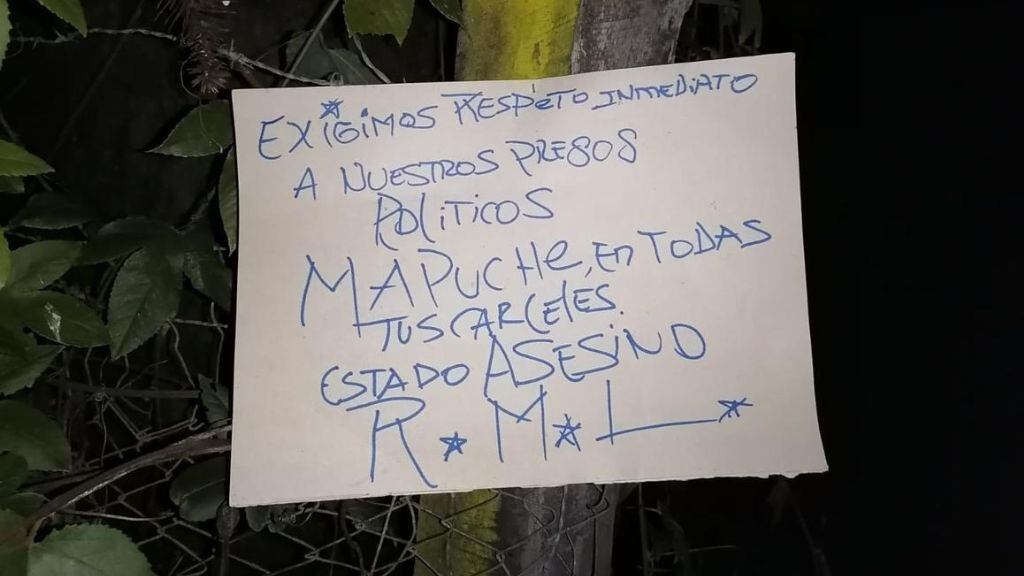 EXIGIMOS RESPETO INMEDIATO
A NUESTROS PRESOS
POLITICOS
MAPUCHE, EN TODAS
TUS CARCELES.
ESTADO ASESINO
R★M★L★